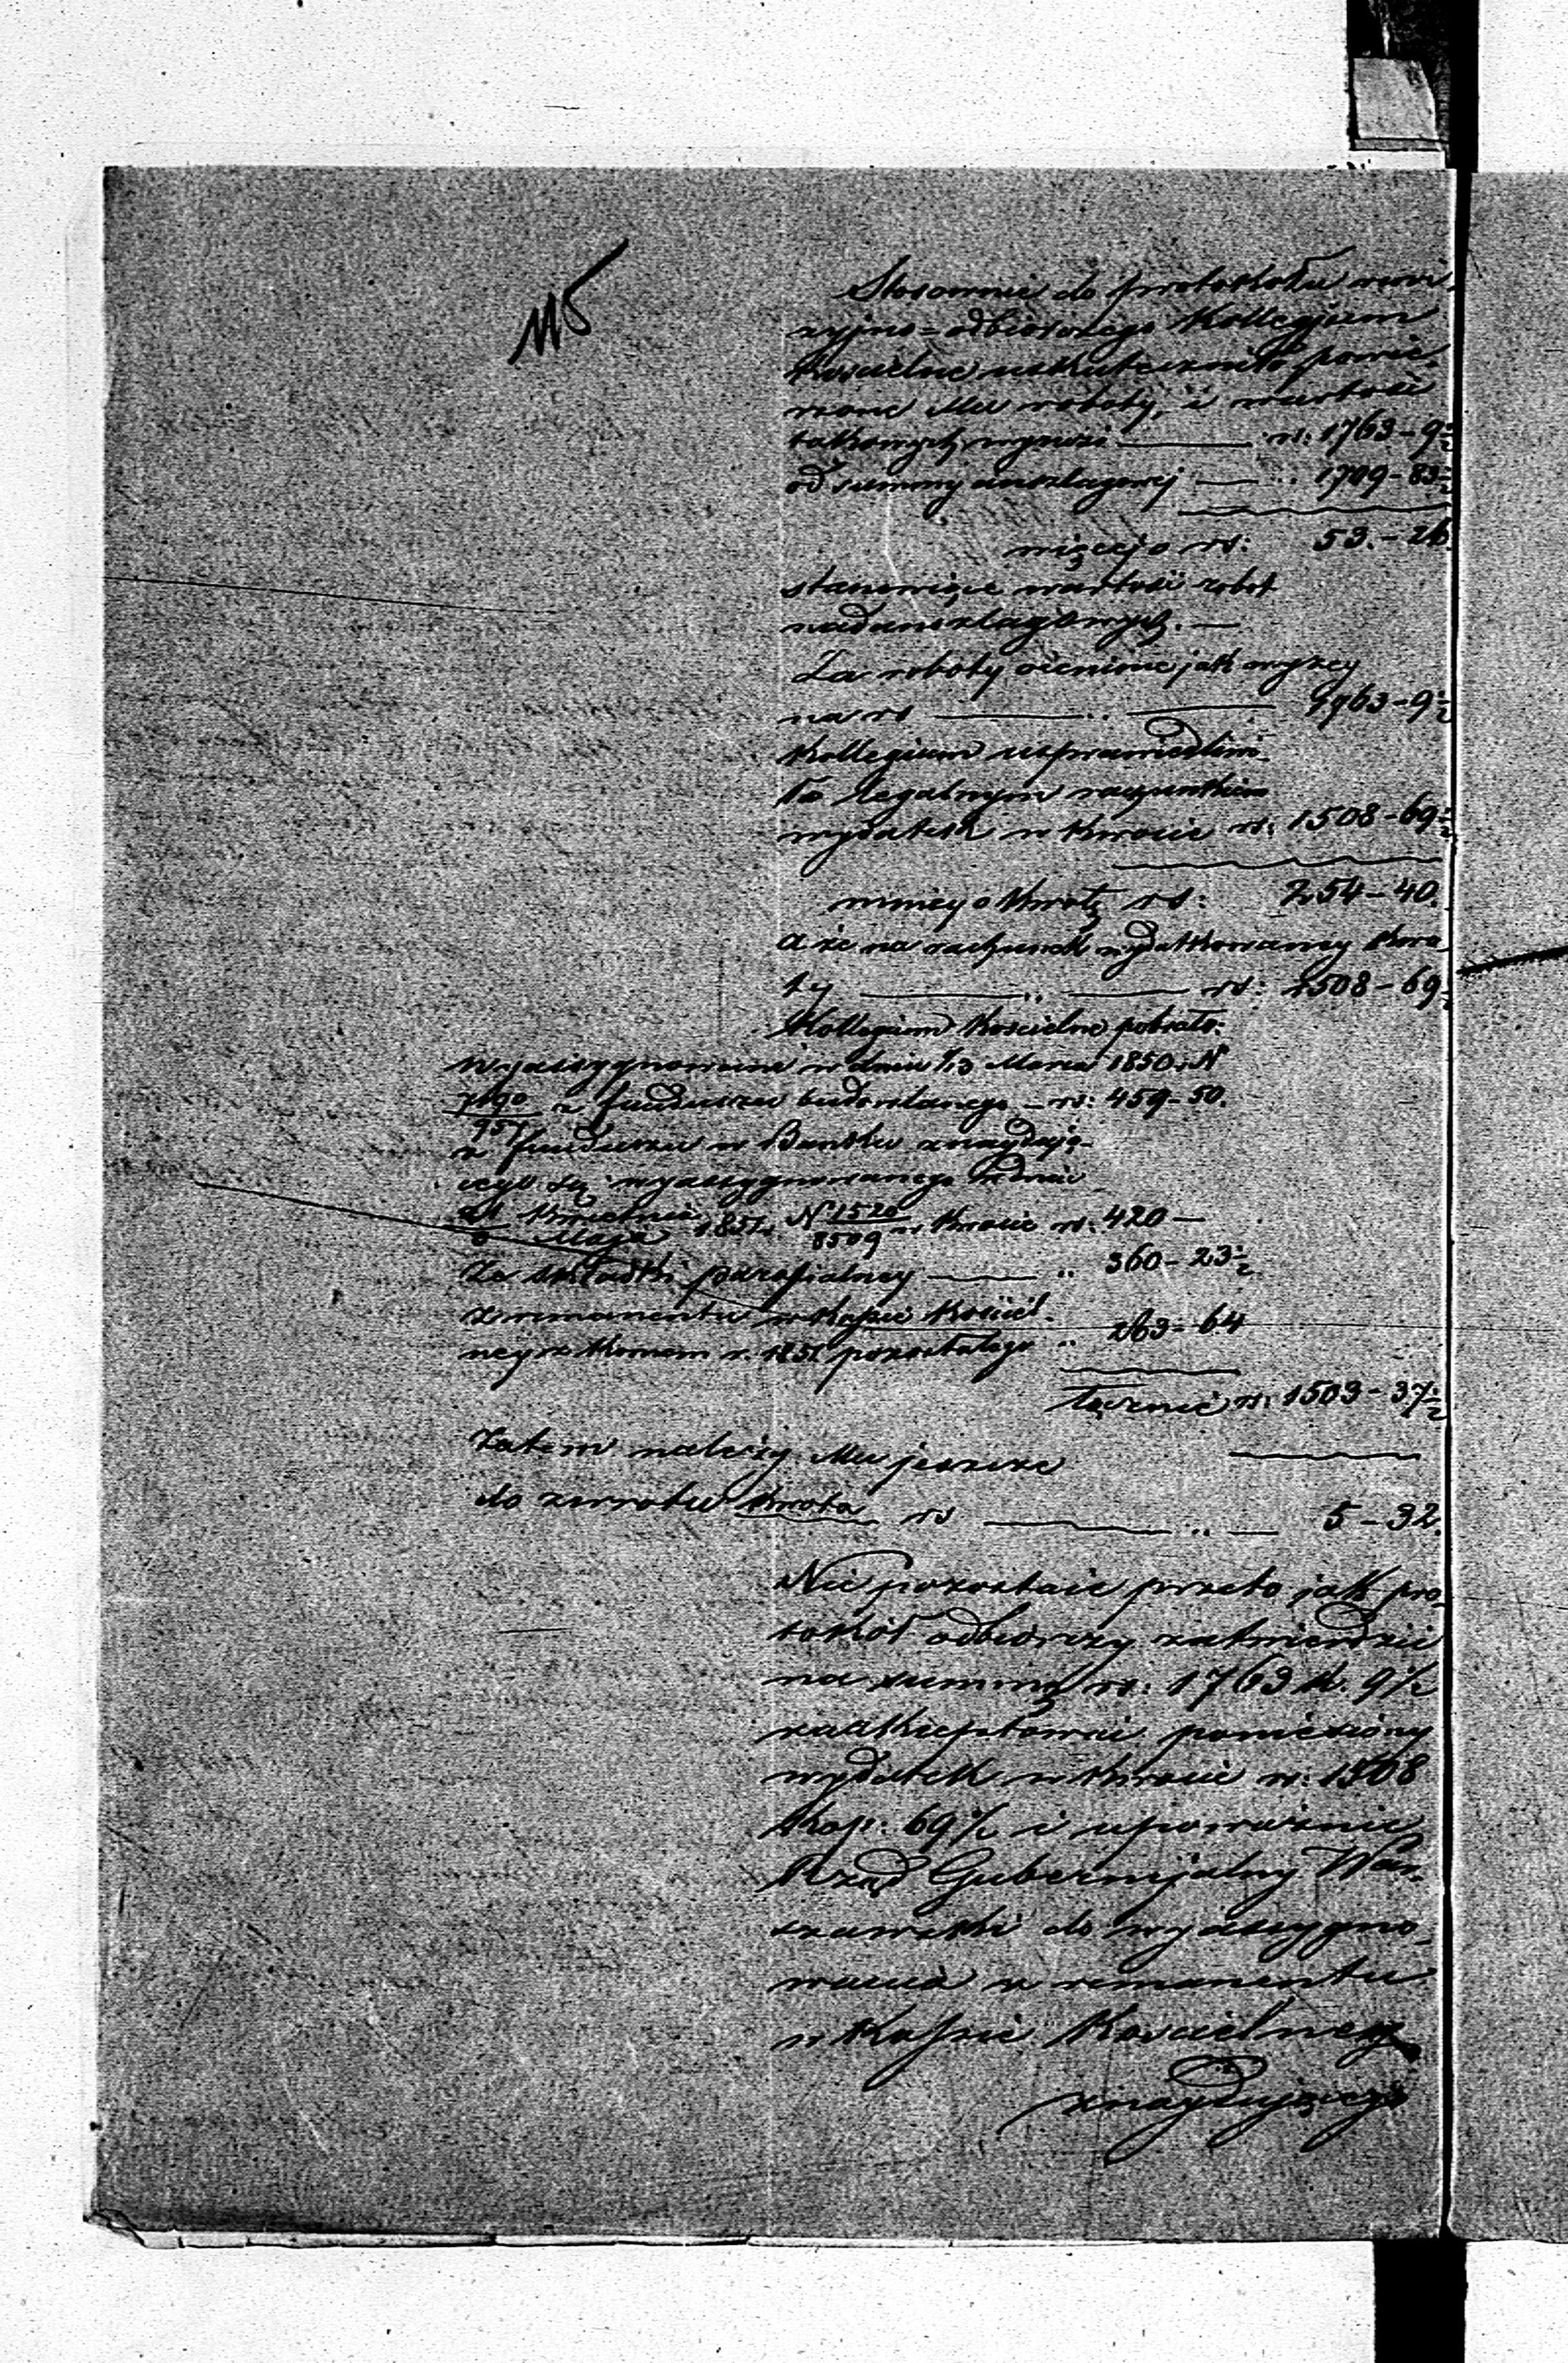 Stosownie do protokołu rewi-
zyjno=odbiorczego Kollegium
Kościelne uskuteczniło powie-
rzone Mu roboty, i wartość
takowych wynosi — rs: 1763-9½
od summy anszlagowej — „ 1709-83½
więcej o rs: 53.-26.
stanowiące wartość robot
nadanszlagowych. —
Za roboty ocenione jak wyżey
na rs — „ — 1763-9½
Kollegium usprawiedliwi-
ło legalnym rachunkiem
wydatek w kwocie rs: 1508-69½
mniey o kwotę rs: 254-40.
a że na rachunek wydatkowaney kwo-
ty — „ — rs: 1508-69½
Kollegium Kościelne pobrało:
wyassygnowane w dniu 1/13 Marca 1850 r. N
7190/957 z funduszu budowlanego — rs: 459-50.
z funduszu w Banku znaydują-
cego się wyassygnowanego w dniu
Kwietnia/Maja 1851 r. N 1520/8509 w kwocie rs: 420 —
Ze składki parafialney — „ 360-23½
z remanentu w Kassie Kościel-
ney z końcem r. 1851 pozostałego „ 263-64
łącznie rs: 1503-37½
Zatem należy Mu jeszcze
do zwrotu kwota rs — „ — 5-32.
Nie pozostaie przeto jak pro-
tokół odbiorczy zatwierdzić
na summę rs: 1763 k. 9½
zaakceptować poniesiony
wydatek w kwocie rs: 1508
kop: 69½ i upoważnić
Rząd Gubernijalny War-
szawski do wyassygno-
wania z remanentu
w Kassie Kościelney
znaydującego